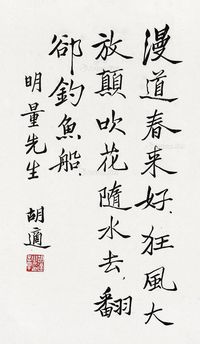 漫道春来好狂風大
放顛吹花隨水去翻
卻釣魚船
明量先生
胡適